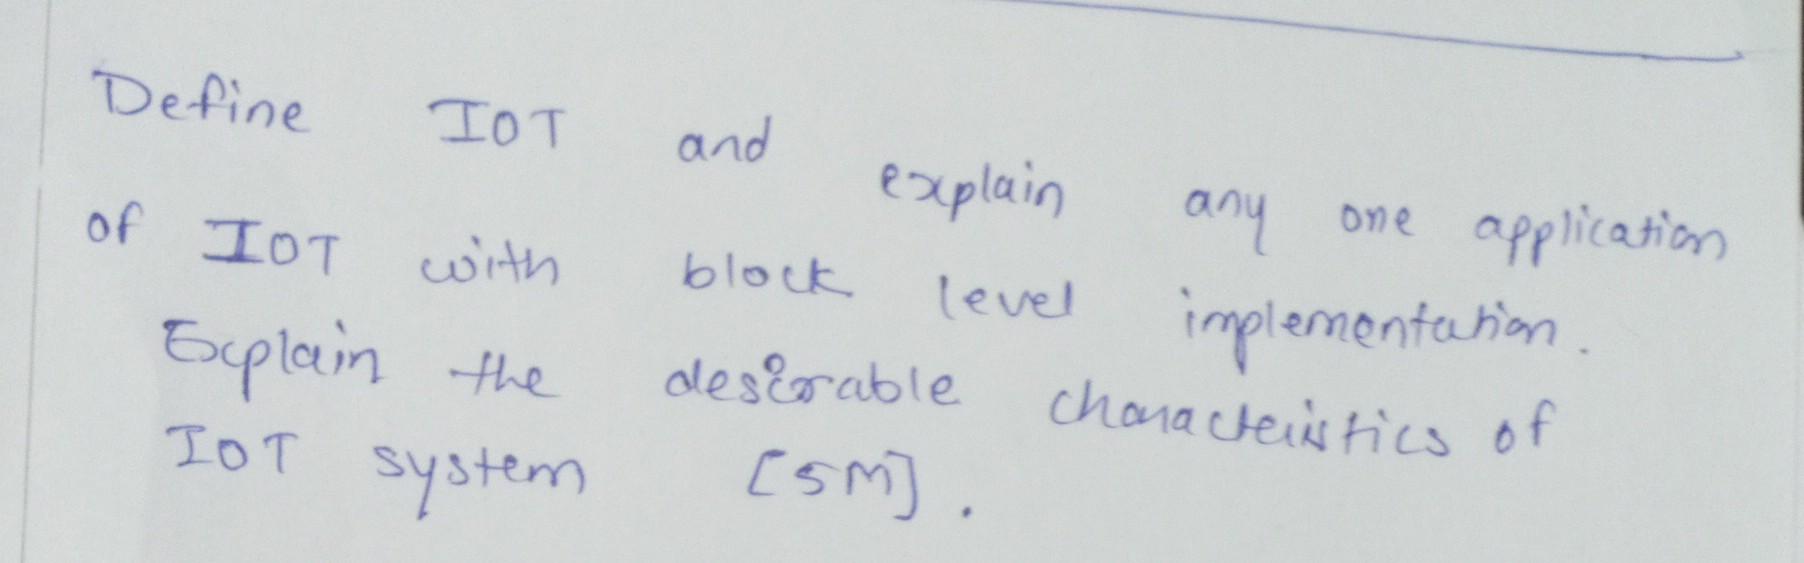 Define IOT and explain any one application
of IOT with block level implementation.
Explain the desirable characteristics of
IOT system [5M].